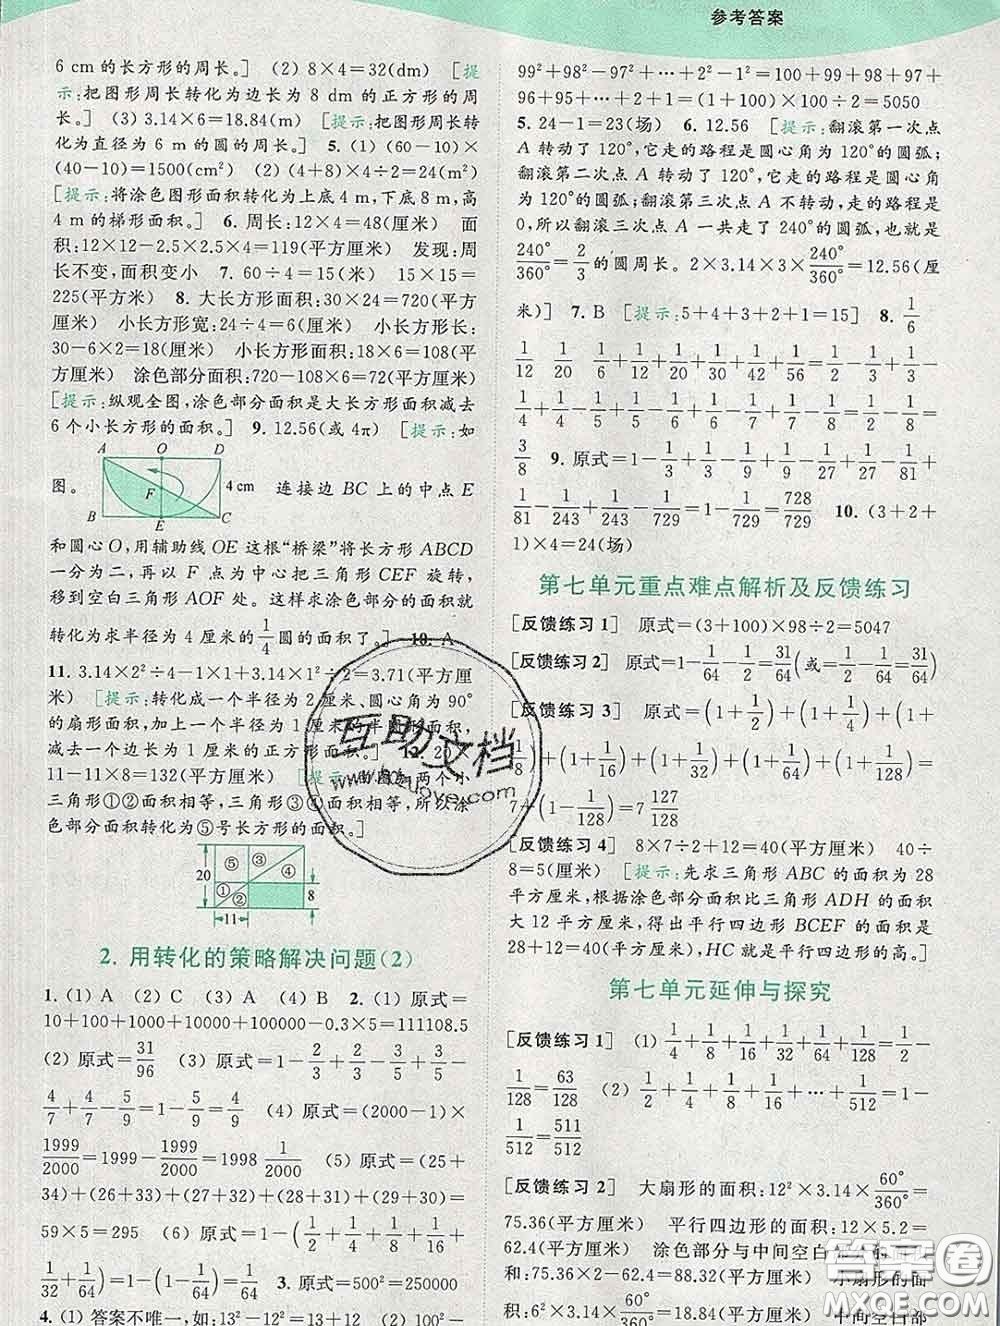 参考答案
6 cm的长方形的周长。] (2) 8×4=32(dm) [提
示:把图形周长转化为边长为 8 dm 的正方形的周
长。] (3) 3.14×6=18.84(m) [提示:把图形周长转
化为直径为 6 m 的圆的周长。] 5. (1) (60-10)×
(40-10)=1500(cm²) (2) (4+8)×4÷2=24(m²)
[提示:将涂色图形面积转化为上底 4 m,下底 8 m,高
4 m 的梯形面积。] 6. 周长:12×4=48(厘米) 面
积:12×12-2.5×2.5×4=119(平方厘米) 发现:周
长不变,面积变小 7. 60÷4=15(米) 15×15=
225(平方米) 8. 大长方形面积:30×24=720(平方
厘米) 小长方形宽:24÷4=6(厘米) 小长方形长:
30-6×2=18(厘米) 小长方形面积:18×6=108(平
方厘米) 涂色部分面积:720-108×6=72(平方厘米)
[提示:纵观全图,涂色部分面积是大长方形面积减去
6 个小长方形的面积。] 9. 12.56(或 4π) [提示:如
A O D
图。 F 4 cm 连接边 BC 上的中点 E
B E C
和圆心 O,用辅助线 OE 这根“桥梁”将长方形 ABCD
一分为二,再以 F 点为中心把三角形 CEF 旋转,
移到空白三角形 AOF 处。这样求涂色部分的面积
转化为求半径为 4 厘米的 1/4 圆的面积了。] 10. A
11. 3.14×2²÷4-1×1+3.14×1²÷2=3.71(平方厘
米) [提示:转化成一个半径为 2 厘米、圆心角为 90°
的扇形面积,加上一个半径为 1 厘米的半圆面积,
减去一个边长为 1 厘米的正方形面积。] 12. 20×
11-11×8=132(平方厘米) [提示:由图知两个小
三角形①②面积相等,三角形③④面积相等,所以涂
色部分面积转化为⑤号长方形的面积。]
⑤ ③ ④
20 ① ② 8
11
2. 用转化的策略解决问题(2)
1. (1) A (2) C (3) A (4) B 2. (1) 原式=
10+100+1000+10000+100000-0.3×5=111108.5
(2) 原式=31/96 (3) 原式=1-2/3+2/3-4/7+
4/7-5/9+5/9=1-5/9=4/9 (4) 原式=(2000-1)×
1999/2000=1999-1999/2000=1998 1/2000 (5) 原式=(25+
34)+(26+33)+(27+32)+(28+31)+(29+30)=
59×5=295 (6) 原式=1-(1/2+1/4+1/8+1/16+
1/32+1/64)=1-(1-1/64)=1/64 3. 原式=500²=250000
4. (1) 答案不唯一,如:13²-12²=13+12=25 (2) 100²-
99²+98²-97²+…+2²-1²=100+99+98+97+
96+95+…+2+1=(1+100)×100÷2=5050
5. 24-1=23(场) 6. 12.56 [提示:翻滚第一次点
A 转动了 120°,它走的路程是圆心角为 120°的圆弧;
翻滚第二次点 A 转动了 120°,它走的路程是圆心角
为 120°的圆弧;翻滚第三次点 A 不转动,走的路程是
0,所以翻滚三次点 A 一共走了 240°的圆弧,也就是
240°/360°=2/3 的圆周长。2×3.14×3×240°/360°=12.56(厘
米)] 7. B [提示:5+4+3+2+1=15] 8. 1/6
1/12 1/20 1/30 1/42 1/4+1/20+1/30+1/42+1/56=
1/4+1/4-1/5+1/5-1/6+1/6-1/7+1/7-1/8=
3/8 9. 原式=1-1/3+1/3-1/9+1/9-1/27+1/27-1/81+
1/81-1/243+1/243-1/729=1-1/729=728/729 10. (3+2+
1)×4=24(场)
第七单元重点难点解析及反馈练习
[反馈练习 1] 原式=(3+100)×98÷2=5047
[反馈练习 2] 原式=1-1/64-1/2=31/64(或=1/2-1/64=31/64)
[反馈练习 3] 原式=(1+1/2)+(1+1/4)+(1+
1/8)+(1+1/16)+(1+1/32)+(1+1/64)+(1+1/128)=
7+(1-1/128)=7 127/128
[反馈练习 4] 8×7÷2+12=40(平方厘米) 40÷
8=5(厘米) [提示:先求三角形 ABC 的面积为 28
平方厘米,根据涂色部分面积比三角形 ADH 的面积
大 12 平方厘米,得出平行四边形 BCEF 的面积为
28+12=40(平方厘米),HC 就是平行四边形的高。]
第七单元延伸与探究
[反馈练习 1] (1) 1/4+1/8+1/16+1/32+1/64+1/128=1/2-
1/128=63/128 (2) 1/2+1/4+1/8+1/16+…+1/512=1-
1/512=511/512
[反馈练习 2] 大扇形的面积:12²×3.14×60°/360°=
75.36(平方厘米) 平行四边形的面积:12×5.2=
62.4(平方厘米) 涂色部分与中间空白部分面积
和:75.36-62.4=88.32(平方厘米) 小扇形的面
积:6²×3.14×60°/360°=18.84(平方厘米) 中间空白部
互助文档
www.hzuoye.com
答案圈
MXQE.COM